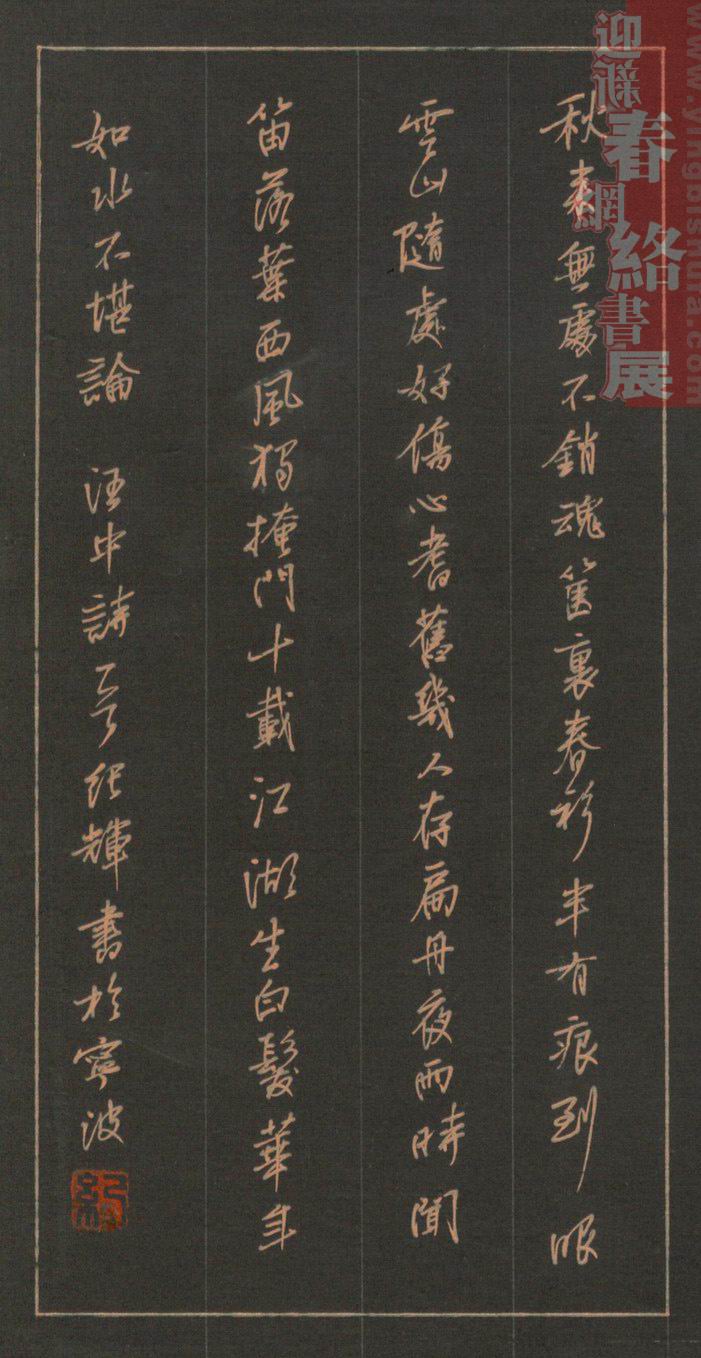 秋来無處不銷魂篋裏春衫半有痕到眼
雲山隨處好傷心耆舊幾人存扁舟夜雨時聞
笛落葉西風獨掩門十載江湖生白髮華年
如水不堪論 汪中詩一首 紀輝書於寧波
紀
迎新春網絡書展
www.yingbishufa.com